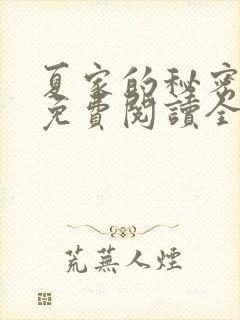 夏家的秘密
免費閱讀全
荒蕪人煙